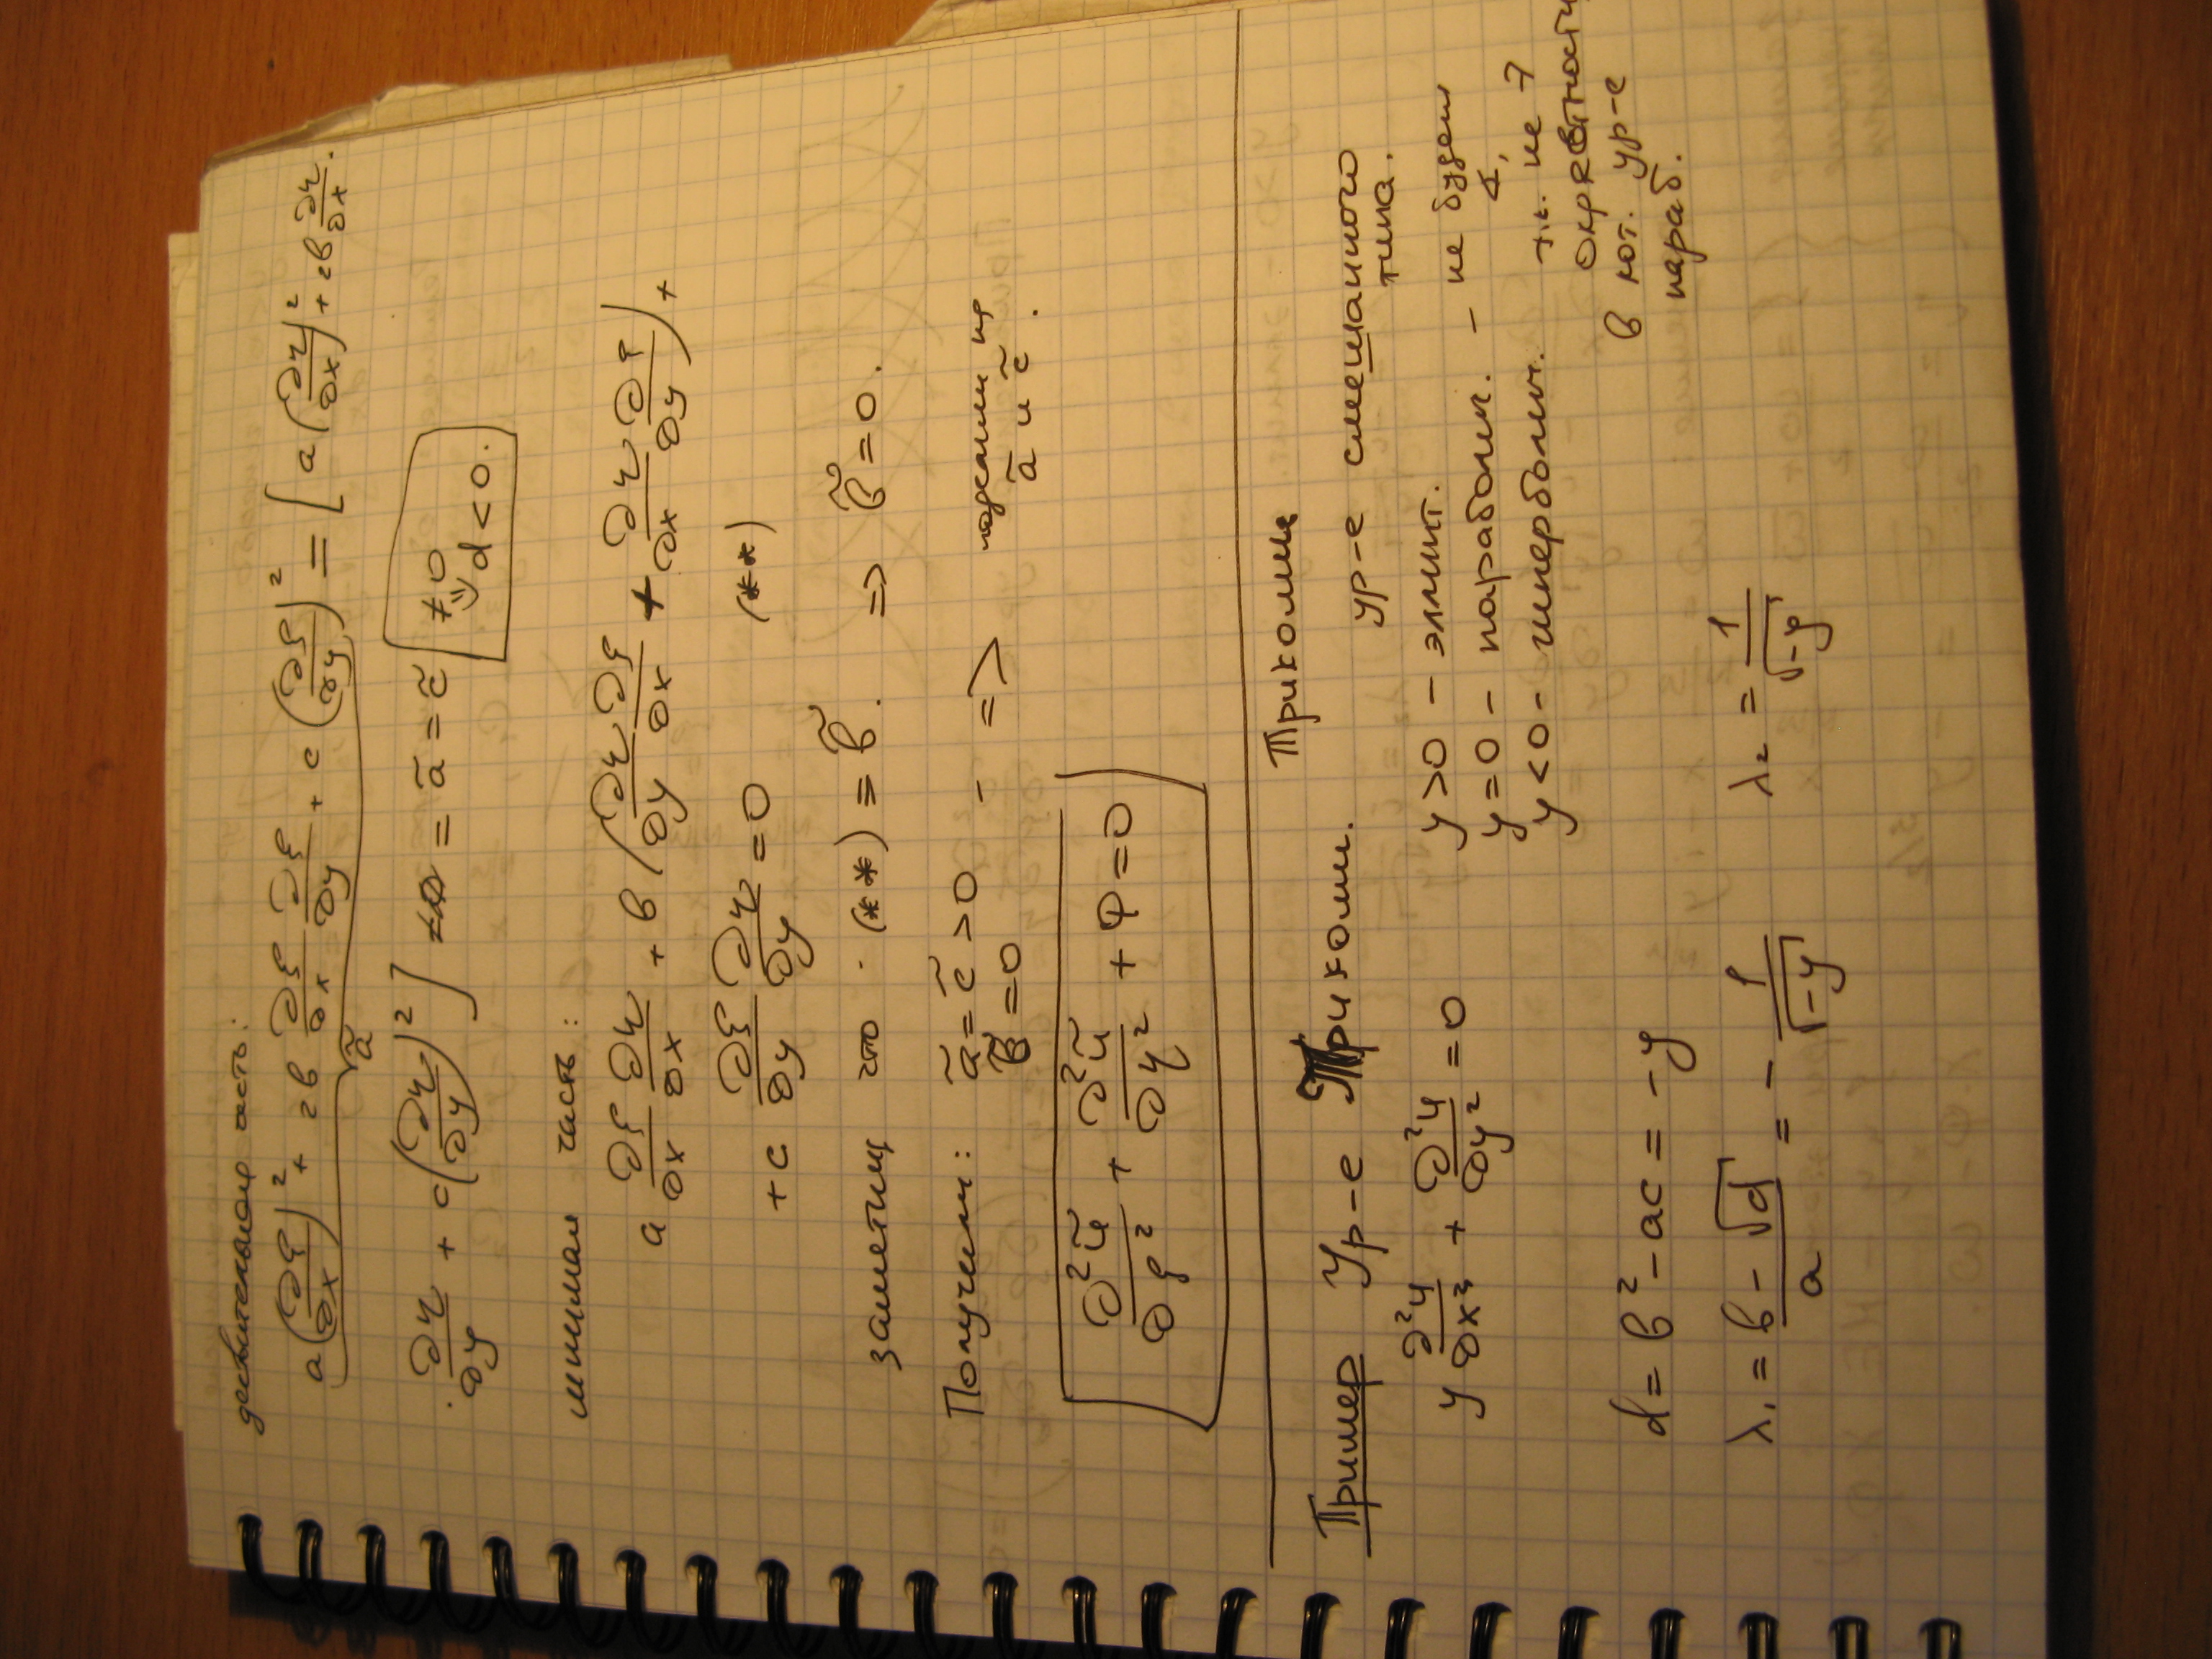 действительная часть:
a(∂ξ/∂x)² + 2b ∂ξ/∂x ∂ξ/∂y + c(∂ξ/∂y)² = [a(∂η/∂x)² + 2b ∂η/∂x ·
ã
· ∂η/∂y + c(∂η/∂y)²] = ã = c̃ ≠ 0
d < 0.
мнимая часть:
a ∂ξ/∂x ∂η/∂x + b(∂η/∂y ∂ξ/∂x + ∂η/∂x ∂ξ/∂y) +
+ c ∂ξ/∂y ∂η/∂y = 0 (**)
заметим что (**) = b̃. => b̃ = 0.
Получим: ã = c̃ > 0 - => поделим на
b̃ = 0 ã и c̃.
∂²ũ/∂ξ² + ∂²ũ/∂η² + Φ = 0
Пример Ур-е Трикоми. Трикоми
y ∂²u/∂x² + ∂²u/∂y² = 0 ур-е смешанного
типа.
y > 0 - эллипт.
y = 0 - параболич. - не будем
y < 0 - гиперболич. т.к. не ∃
окрестности,
d = b² - ac = -y в кот. ур-е
параб.
λ₁ = (b - √d)/a = - 1/√-y λ₂ = 1/√-y